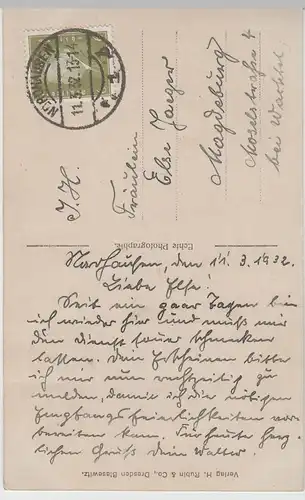 NORDHAUSEN
11.3.32.13-14
I. H.
Fräulein
Else Jaeger
Magdeburg
Moselstraße 4
bei Wachtel
Echte Photographie.
Nordhausen, den 11. 3. 1932.
Liebe Else!
Seit ein paar Tagen bin
ich wieder hier und muß mir
den Dienst sauer schmecken
lassen. Dein Erscheinen bitte
ich mir nun rechtzeitig zu
melden, damit ich die nötigen
Empfangsfeierlichkeiten vor-
bereiten kann. Für heute herz-
lichen Gruß Dein Walter.
Verlag H. Rubin & Co., Dresden Blasewitz.